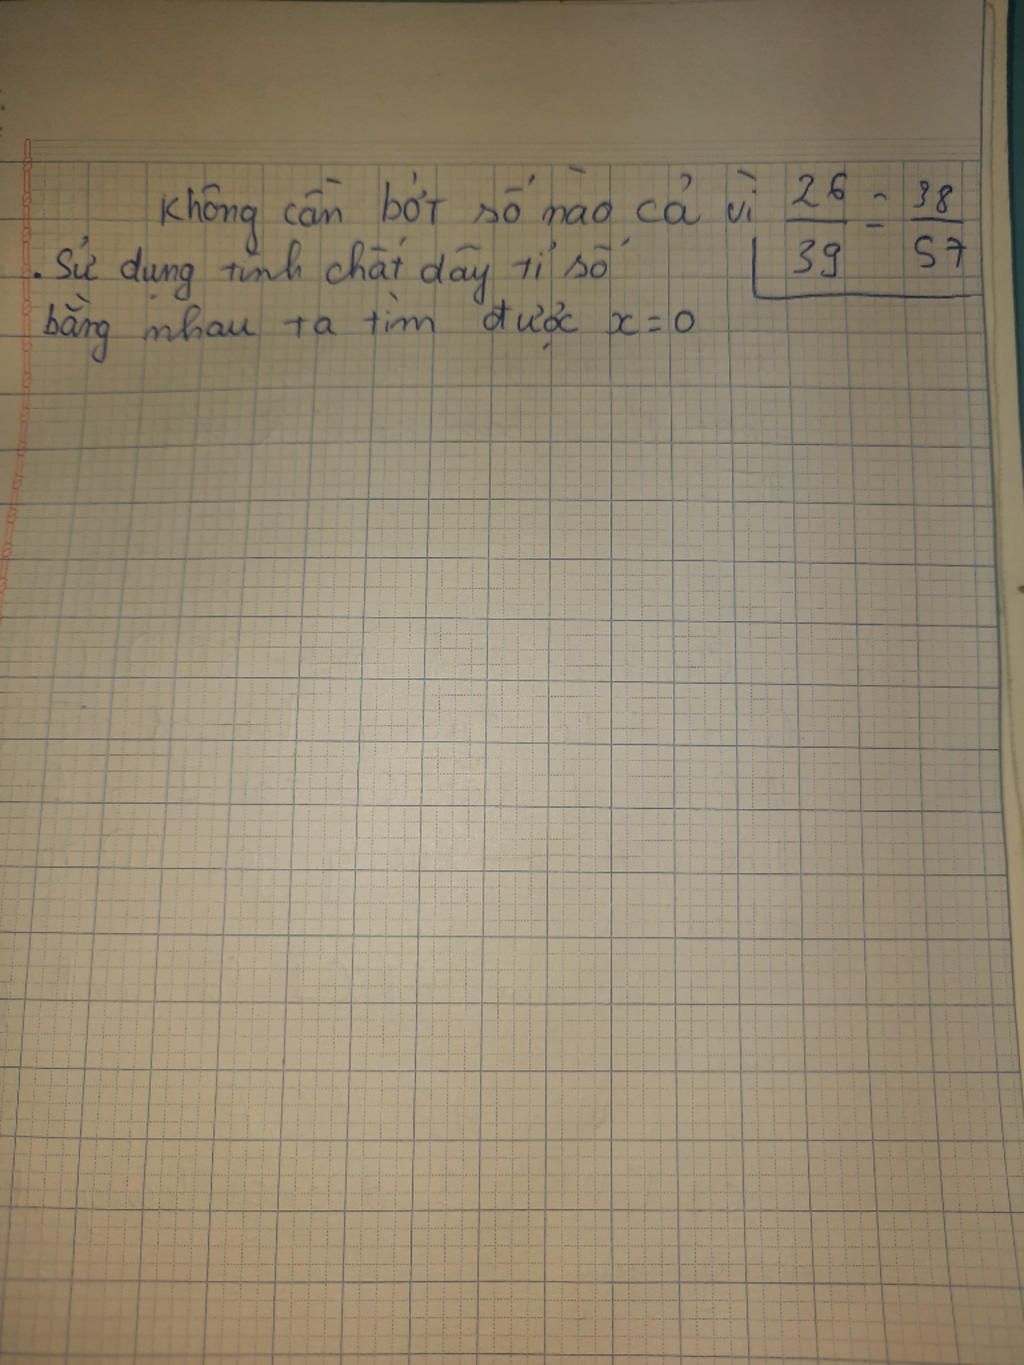 Không cần bớt số nào cả vì 26/39 = 38/57
. Sử dụng tính chất dãy tỉ số
bằng nhau ta tìm được x = 0